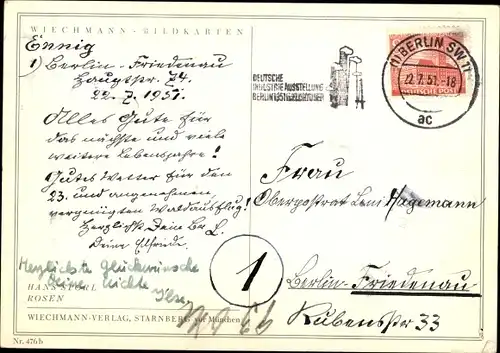 WIECHMANN - BILDKARTEN
Ennig
1) Berlin - Friedenau
Hauptstr. 74.
22.7.1951.
Alles Gute für
das nächste und viele
weitere Lebensjahre!
Gutes Wetter für den
23. und angenehmen,
vergnügten Waldausflug!
Herzlichst Deine
Deine Elfriede.
Herzlichste Glückwünsche
Ilse
HANS SPÖRL
ROSEN
WIECHMANN-VERLAG, STARNBERG vor München
Nr. 476 b
DEUTSCHE
INDUSTRIE AUSSTELLUNG
BERLIN
(1) BERLIN SW 11
22.7.51.-18
ac
DEUTSCHE POST
Frau
Oberpostrat Leni Hagemann
1
Berlin-Friedenau
Rubensstr 33